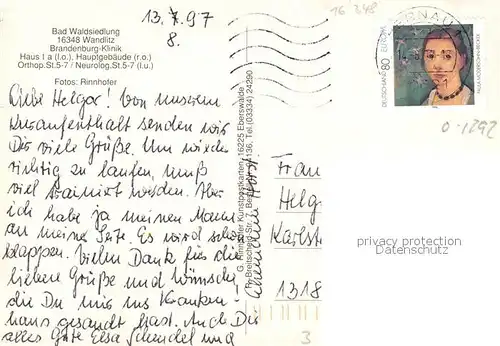 Bad Waldsiedlung
16348 Wandlitz
Brandenburg-Klinik
Haus I a (l.o.), Hauptgebäude (r.o.)
Orthop.St.5-7 / Neurolog.St.5-7 (l.u.)
Fotos: Rinnhofer
13. 7. 97
8.
16 348
BERNAU
DEUTSCHLAND 80 EUROPA
PAULA MODERSOHN-BECKER
0-1292
Liebe Helga! Von unserem
Kuraufenthalt senden wir
Dir viele Grüße. Um wieder
richtig zu laufen, muß
viel trainiert werden. Aber
ich habe ja meinen Mann
an meine Seite. Es wird schon
klappen. Vielen Dank für die
lieben Grüße und Wünsche,
die Du mir ins Kranken-
haus gesandt hast. Auch Dir
alles Gute Elsa Schendel und
Ehemann Horst.
G. Rinnhofer Kunstpostkarten, 16225 Eberswalde
Tel.(03334) 24290
Frau
Helg
Karlst
1318
3
privacy protection
Datenschutz